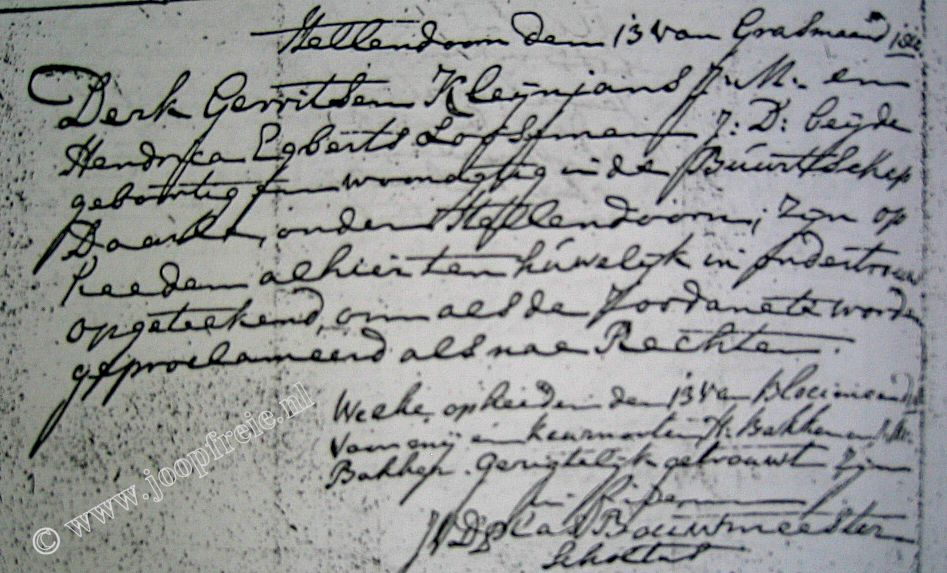 Hellendoorn dem 13 van Grasmaand
Derk Gerritsen Kleijnjans J. M. en
Hendrica Egberts J: D: beijde
geboortig en woonagtig in de Buurtschep
Daarle, onder Hellendoorn; zijn op
heeden alhier ten huwelijk in ondertrouw
opgeteekend, om als de te worden
geproclameerd als nae Rechten.
Welke op heeden den 13 van Bloeimaand
voor mij en keurnooten Bakker en
Bakker. Gerigtelijk getrouwt zijn
in
Bouwmeester
Scholtus
© www.joopfreie.nl